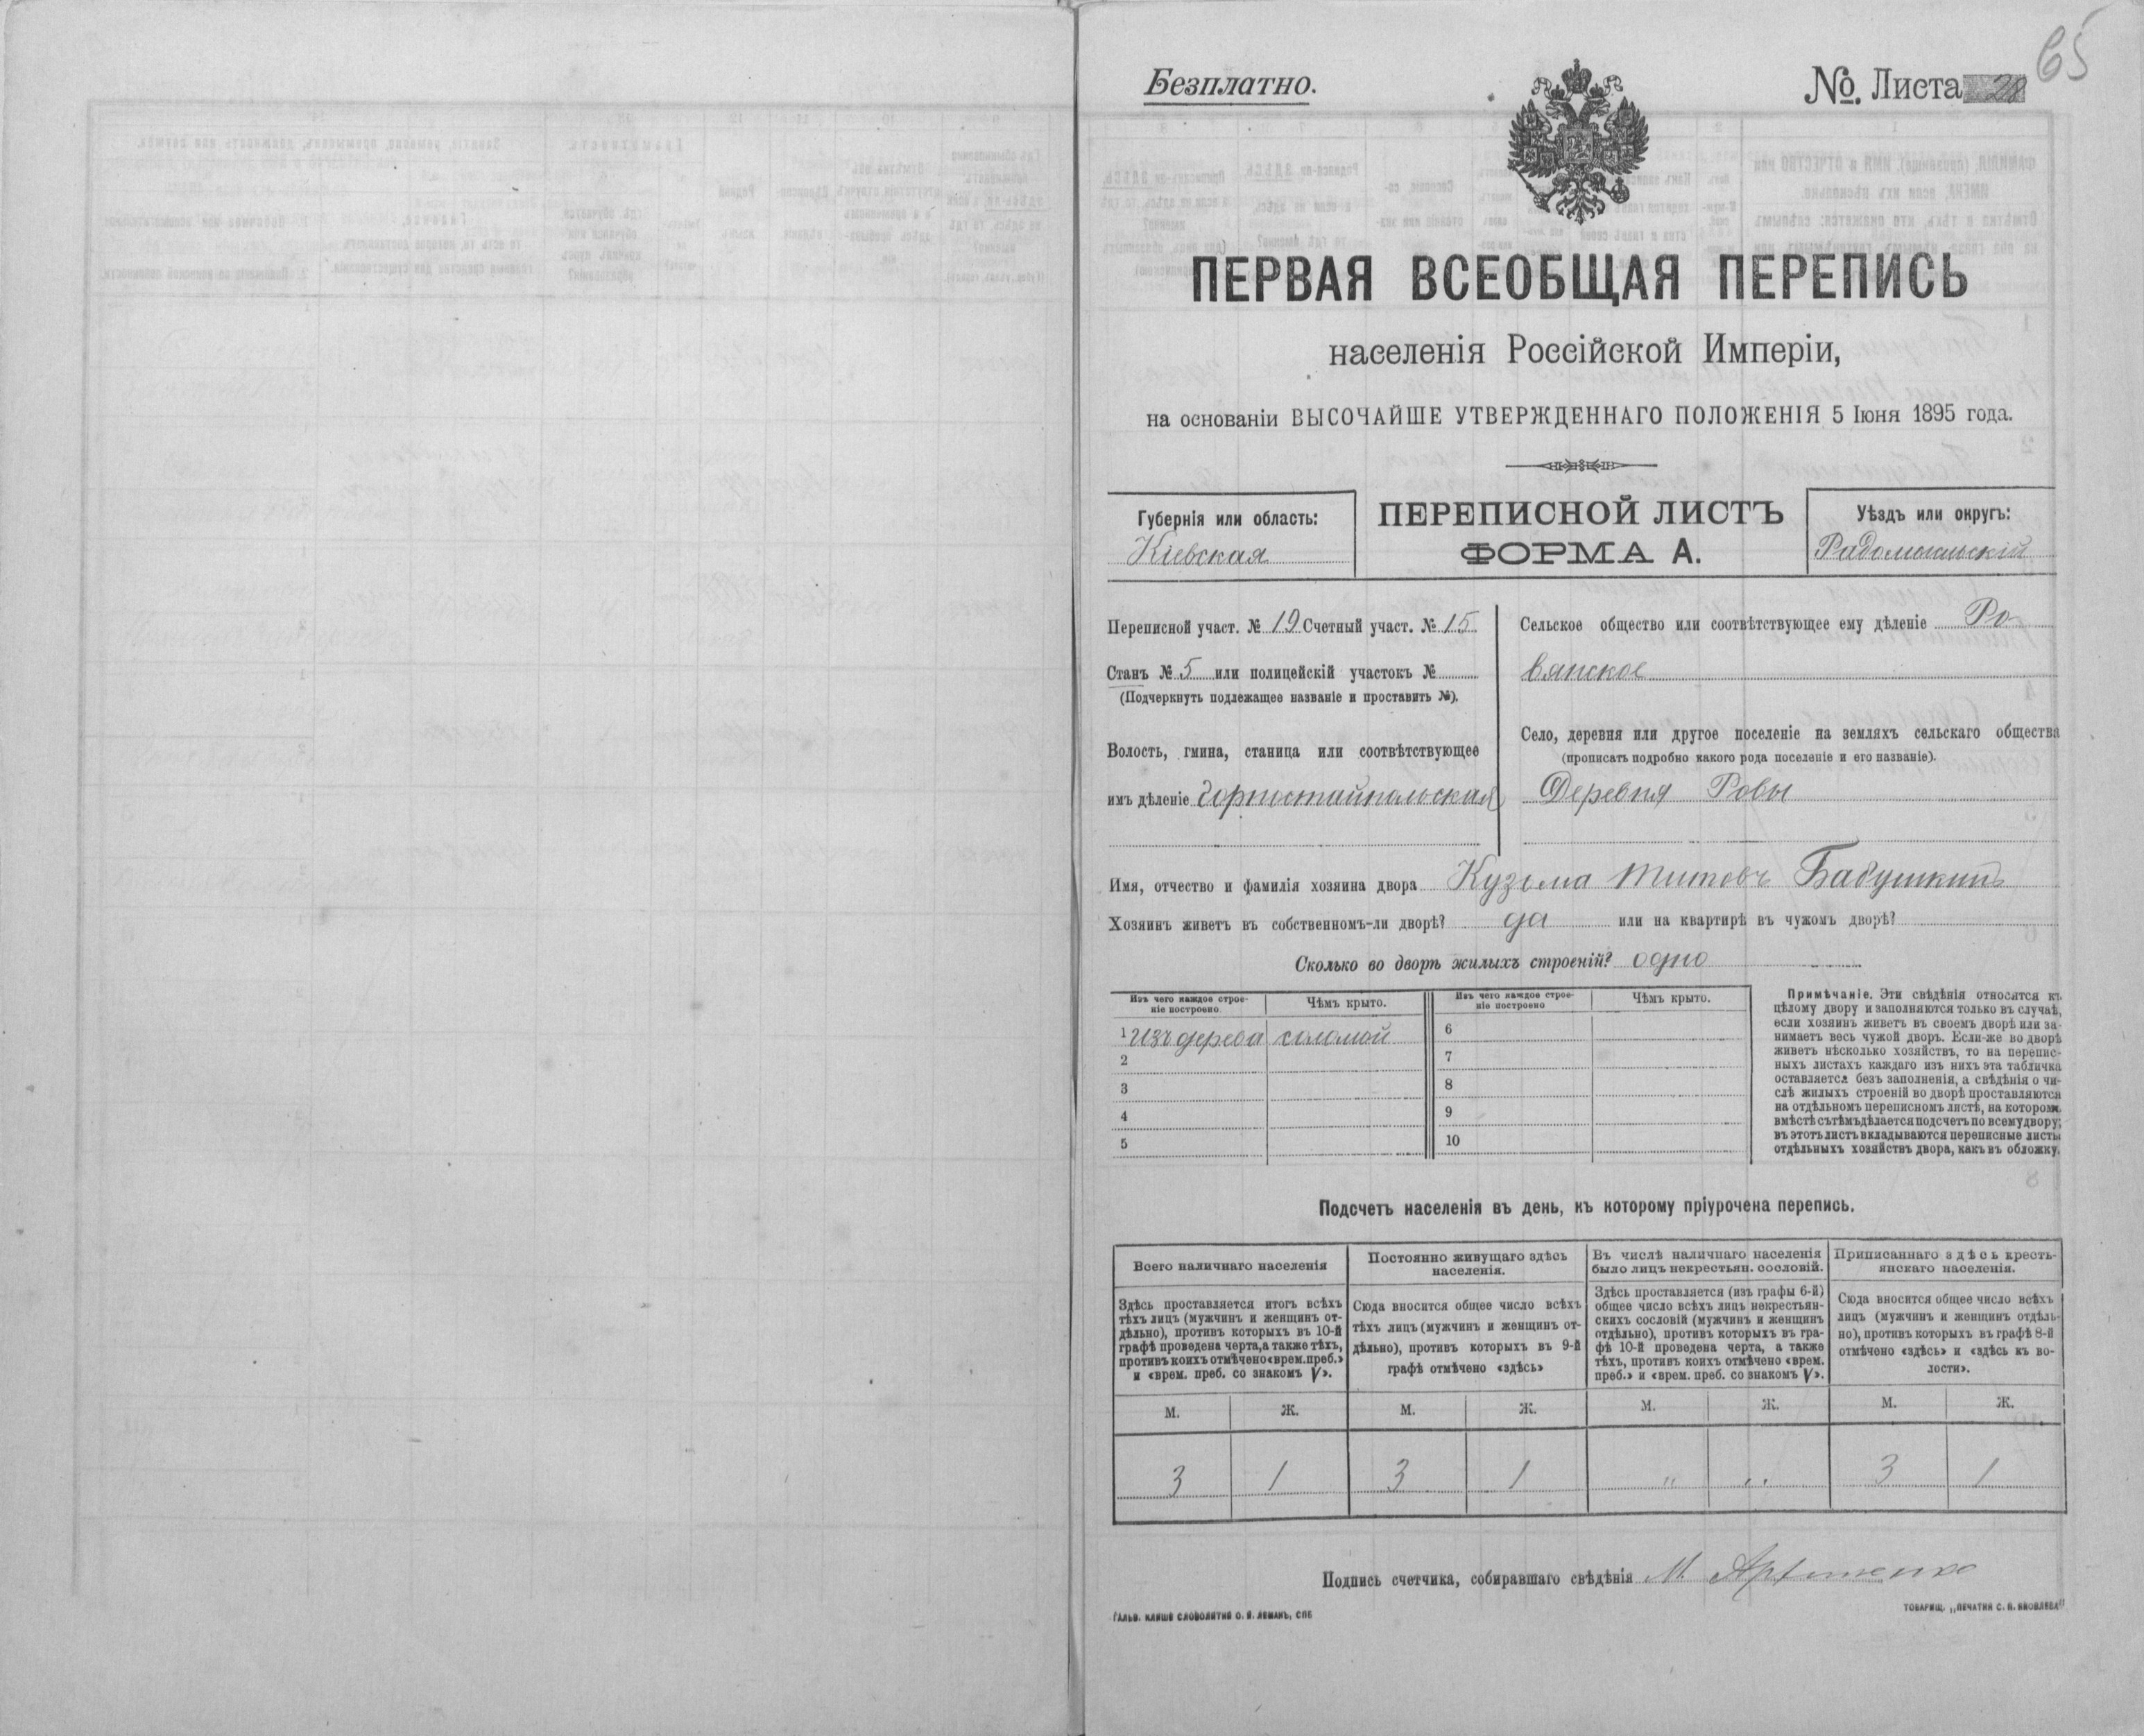 65
Безплатно.
№. Листа 28
ПЕРВАЯ ВСЕОБЩАЯ ПЕРЕПИСЬ
населенія Россійской Имперіи,
на основаніи ВЫСОЧАЙШЕ УТВЕРЖДЕННАГО ПОЛОЖЕНІЯ 5 Іюня 1895 года.
Губернія или область:
Кіевская
ПЕРЕПИСНОЙ ЛИСТЪ
ФОРМА А.
Уѣздъ или округъ:
Радомысльскій
Переписной участ. № 19 Счетный участ. № 15
Станъ № 5 или полицейскій участокъ №
(Подчеркнуть подлежащее названіе и проставить №).
Волость, гмина, станица или соотвѣтствующее
имъ дѣленіе Горностайпольская
Сельское общество или соотвѣтствующее ему дѣленіе Ро
вянское
Село, деревня или другое поселеніе на земляхъ сельскаго общества
(прописать подробно какого рода поселеніе и его названіе).
Деревня Ровы
Имя, отчество и фамилія хозяина двора Кузьма Титовъ Бабушкинъ
Хозяинъ живетъ въ собственномъ-ли дворѣ? да или на квартирѣ въ чужомъ дворѣ?
Сколько во дворѣ жилыхъ строеній? одно
Изъ чего каждое строе-
ніе построено
Чѣмъ крыто.
Изъ чего каждое строе-
ніе построено
Чѣмъ крыто.
1 Изъ дерева соломой
2
3
4
5
6
7
8
9
10
Примѣчаніе. Эти свѣдѣнія относятся къ
цѣлому двору и заполняются только въ случаѣ,
если хозяинъ живетъ въ своемъ дворѣ или за-
нимаетъ весь чужой дворъ. Если-же во дворѣ
живетъ нѣсколько хозяйствъ, то на перепис-
ныхъ листахъ каждаго изъ нихъ эта табличка
оставляется безъ заполненія, а свѣдѣнія о чи-
слѣ жилыхъ строеній во дворѣ проставляются
на отдѣльномъ переписномъ листѣ, на которомъ
вмѣстѣ съ тѣмъ дѣлается подсчетъ по всему двору;
въ этотъ листъ вкладываются переписные листы
отдѣльныхъ хозяйствъ двора, какъ въ обложку.
Подсчетъ населенія въ день, къ которому пріурочена перепись.
Всего наличнаго населенія
Здѣсь проставляется итогъ всѣхъ
тѣхъ лицъ (мужчинъ и женщинъ от-
дѣльно), противъ которыхъ въ 10-й
графѣ проведена черта, а также тѣхъ,
противъ коихъ отмѣчено «врем. преб.»
и «врем. преб. со знакомъ V».
Постоянно живущаго здѣсь
населенія.
Сюда вносится общее число всѣхъ
тѣхъ лицъ (мужчинъ и женщинъ от-
дѣльно), противъ которыхъ въ 9-й
графѣ отмѣчено «здѣсь»
Въ числѣ наличнаго населенія
было лицъ некрестьян. сословій.
Здѣсь проставляется (изъ графы 6-й)
общее число всѣхъ лицъ некрестьян-
скихъ сословій (мужчинъ и женщинъ
отдѣльно), противъ которыхъ въ гра-
фѣ 10-й проведена черта, а также
тѣхъ, противъ коихъ отмѣчено «врем.
преб.» и «врем. преб. со знакомъ V».
Приписаннаго здѣсь кресть-
янскаго населенія.
Сюда вносится общее число всѣхъ
лицъ (мужчинъ и женщинъ отдѣль-
но), противъ которыхъ въ графѣ 8-й
отмѣчено «здѣсь» и «здѣсь въ во-
лости».
М. Ж. М. Ж. М. Ж. М. Ж.
3 1 3 1 " " 3 1
Подпись счетчика, собиравшаго свѣдѣнія М.
ГАЛЬВ. КЛИШЕ СЛОВОЛИТНИ О. И. ЛЕМАНЪ, СПБ
ТОВАРИЩ. „ПЕЧАТНИ С. П. ЯКОВЛЕВА"